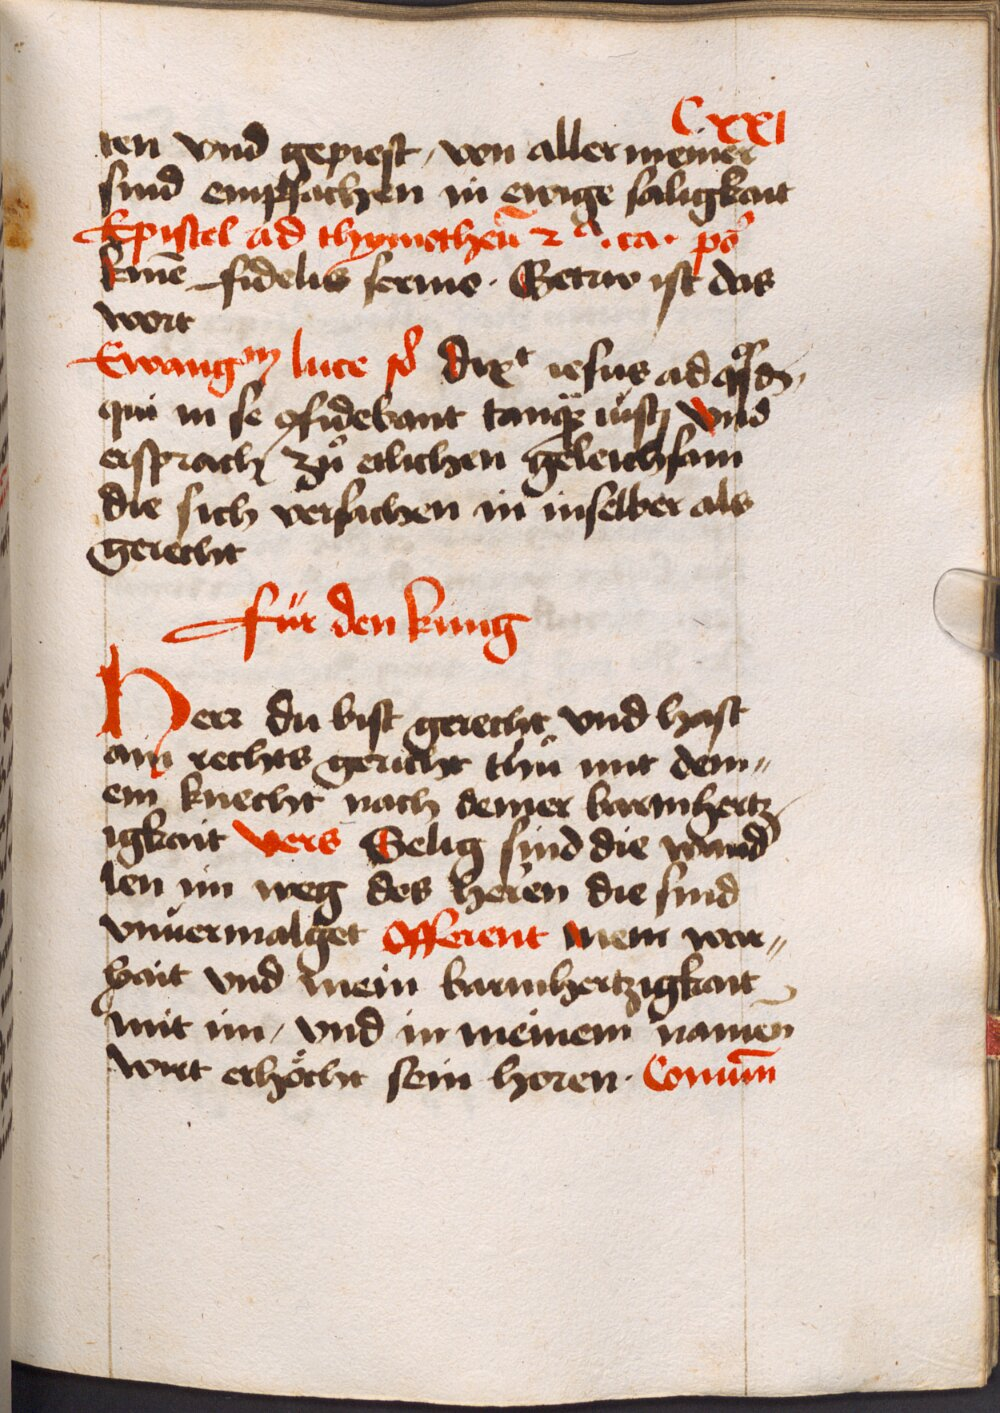 Cxxi
ten vnd gepiest / von aller meiner
sind empfachen in ewige saligkait
Epistel ad thymotheū 2ᵃ. ca. pº
kmē fidelis sermo · Getrw ist das
wort
Ewangᵐ luce Dixᵗ iesus ad qͦsdā
qui in se ꝯfidebant tanqͣ iusti vnd
ersprach zů etlichen geleichsam
die sich versachen in inselber als
gerecht
für den kunig
Herr du bist gerecht vnd hast
ain rechts gericht thů mit dein〃
em knecht nach deiner barmhertz
igkait vers Selig sind die wand
len im weg des heren die sind
vnuermalget Offerent Mein war〃
hait vnd mein barmhertzigkait
mit im / vnd in meinem namen
wirt erhöcht sein horen · Comūn